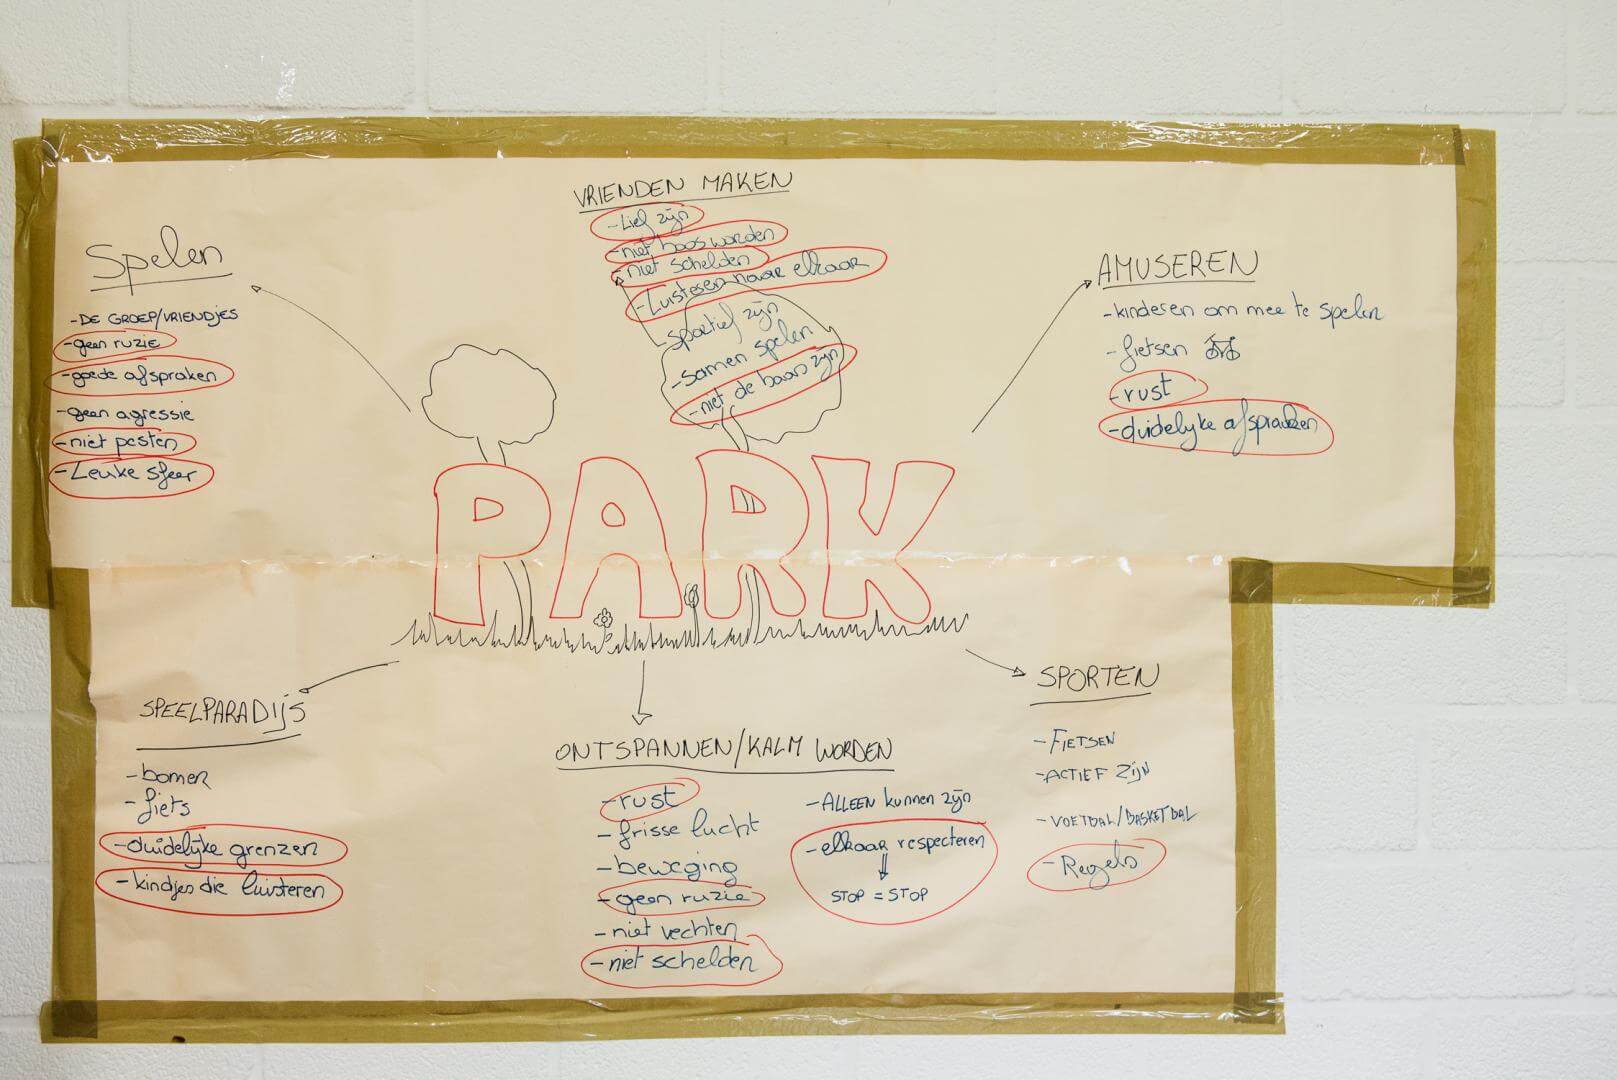 VRIENDEN MAKEN
- Lief zijn
- niet boos worden
- niet schelden
- Luisteren naar elkaar
- sportief zijn
- samen spelen
- niet de baas zijn
Spelen
- DE GROEP/VRIENDJES
- geen ruzie
- goede afspraken
- geen agressie
- niet pesten
- Leuke sfeer
AMUSEREN
- kinderen om mee te spelen
- fietsen
- rust
- duidelijke afspraken
PARK
SPEELPARADIJS
- bomen
- fiets
- duidelijke grenzen
- kindjes die luisteren
ONTSPANNEN/KALM WORDEN
- rust
- frisse lucht
- beweging
- geen ruzie
- niet vechten
- niet schelden
- ALLEEN kunnen zijn
- elkaar respecteren
STOP = STOP
SPORTEN
- FIETSEN
- ACTIEF ZIJN
- VOETBAL/BASKETBAL
- Regels